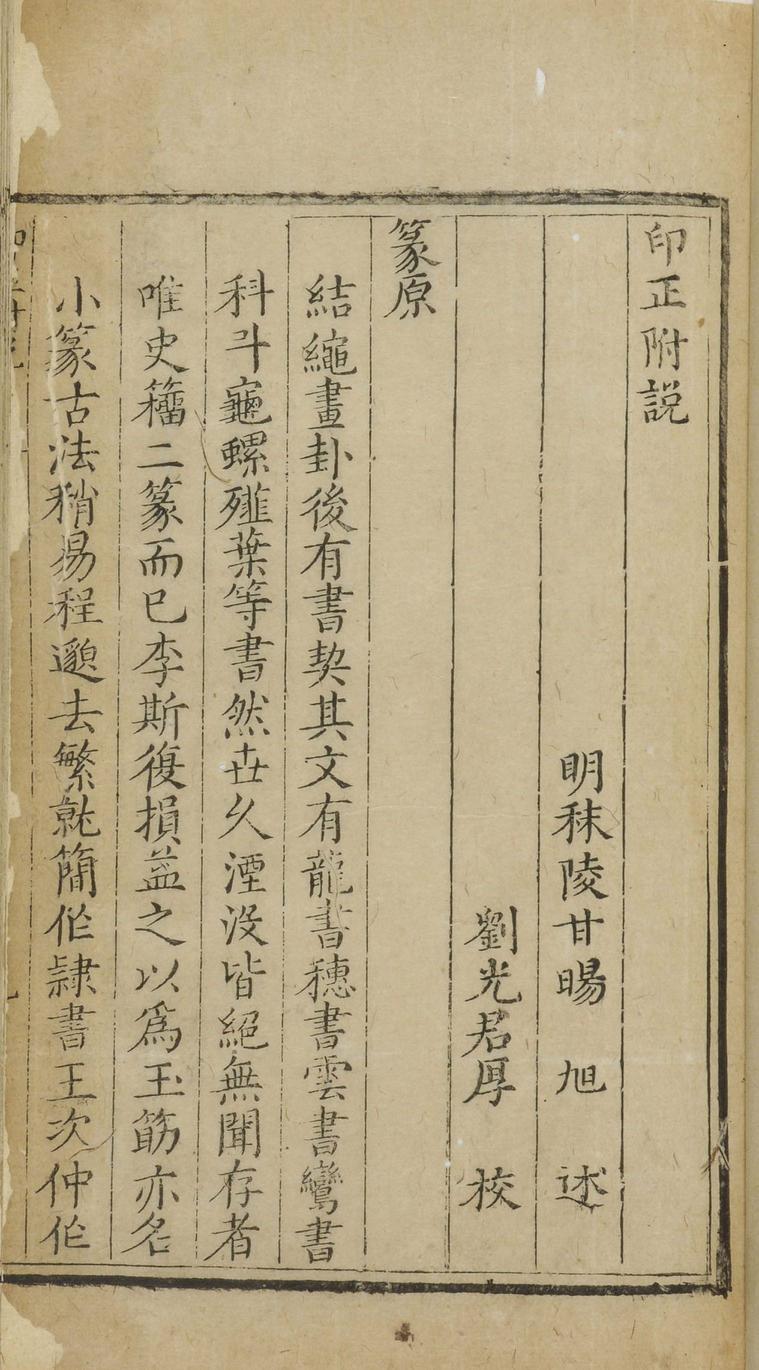 印正附説
明秣陵甘暘 旭 述
劉光君厚 校
篆原
結繩畫卦後有書契其文有龍書穗書雲書鸞書
科斗龜螺薤葉等書然世久湮没皆絕無聞存者
唯史籀二篆而已李斯復損益之以爲玉筯亦名
小篆古法稍易程邈去繁就簡作隷書王次仲作